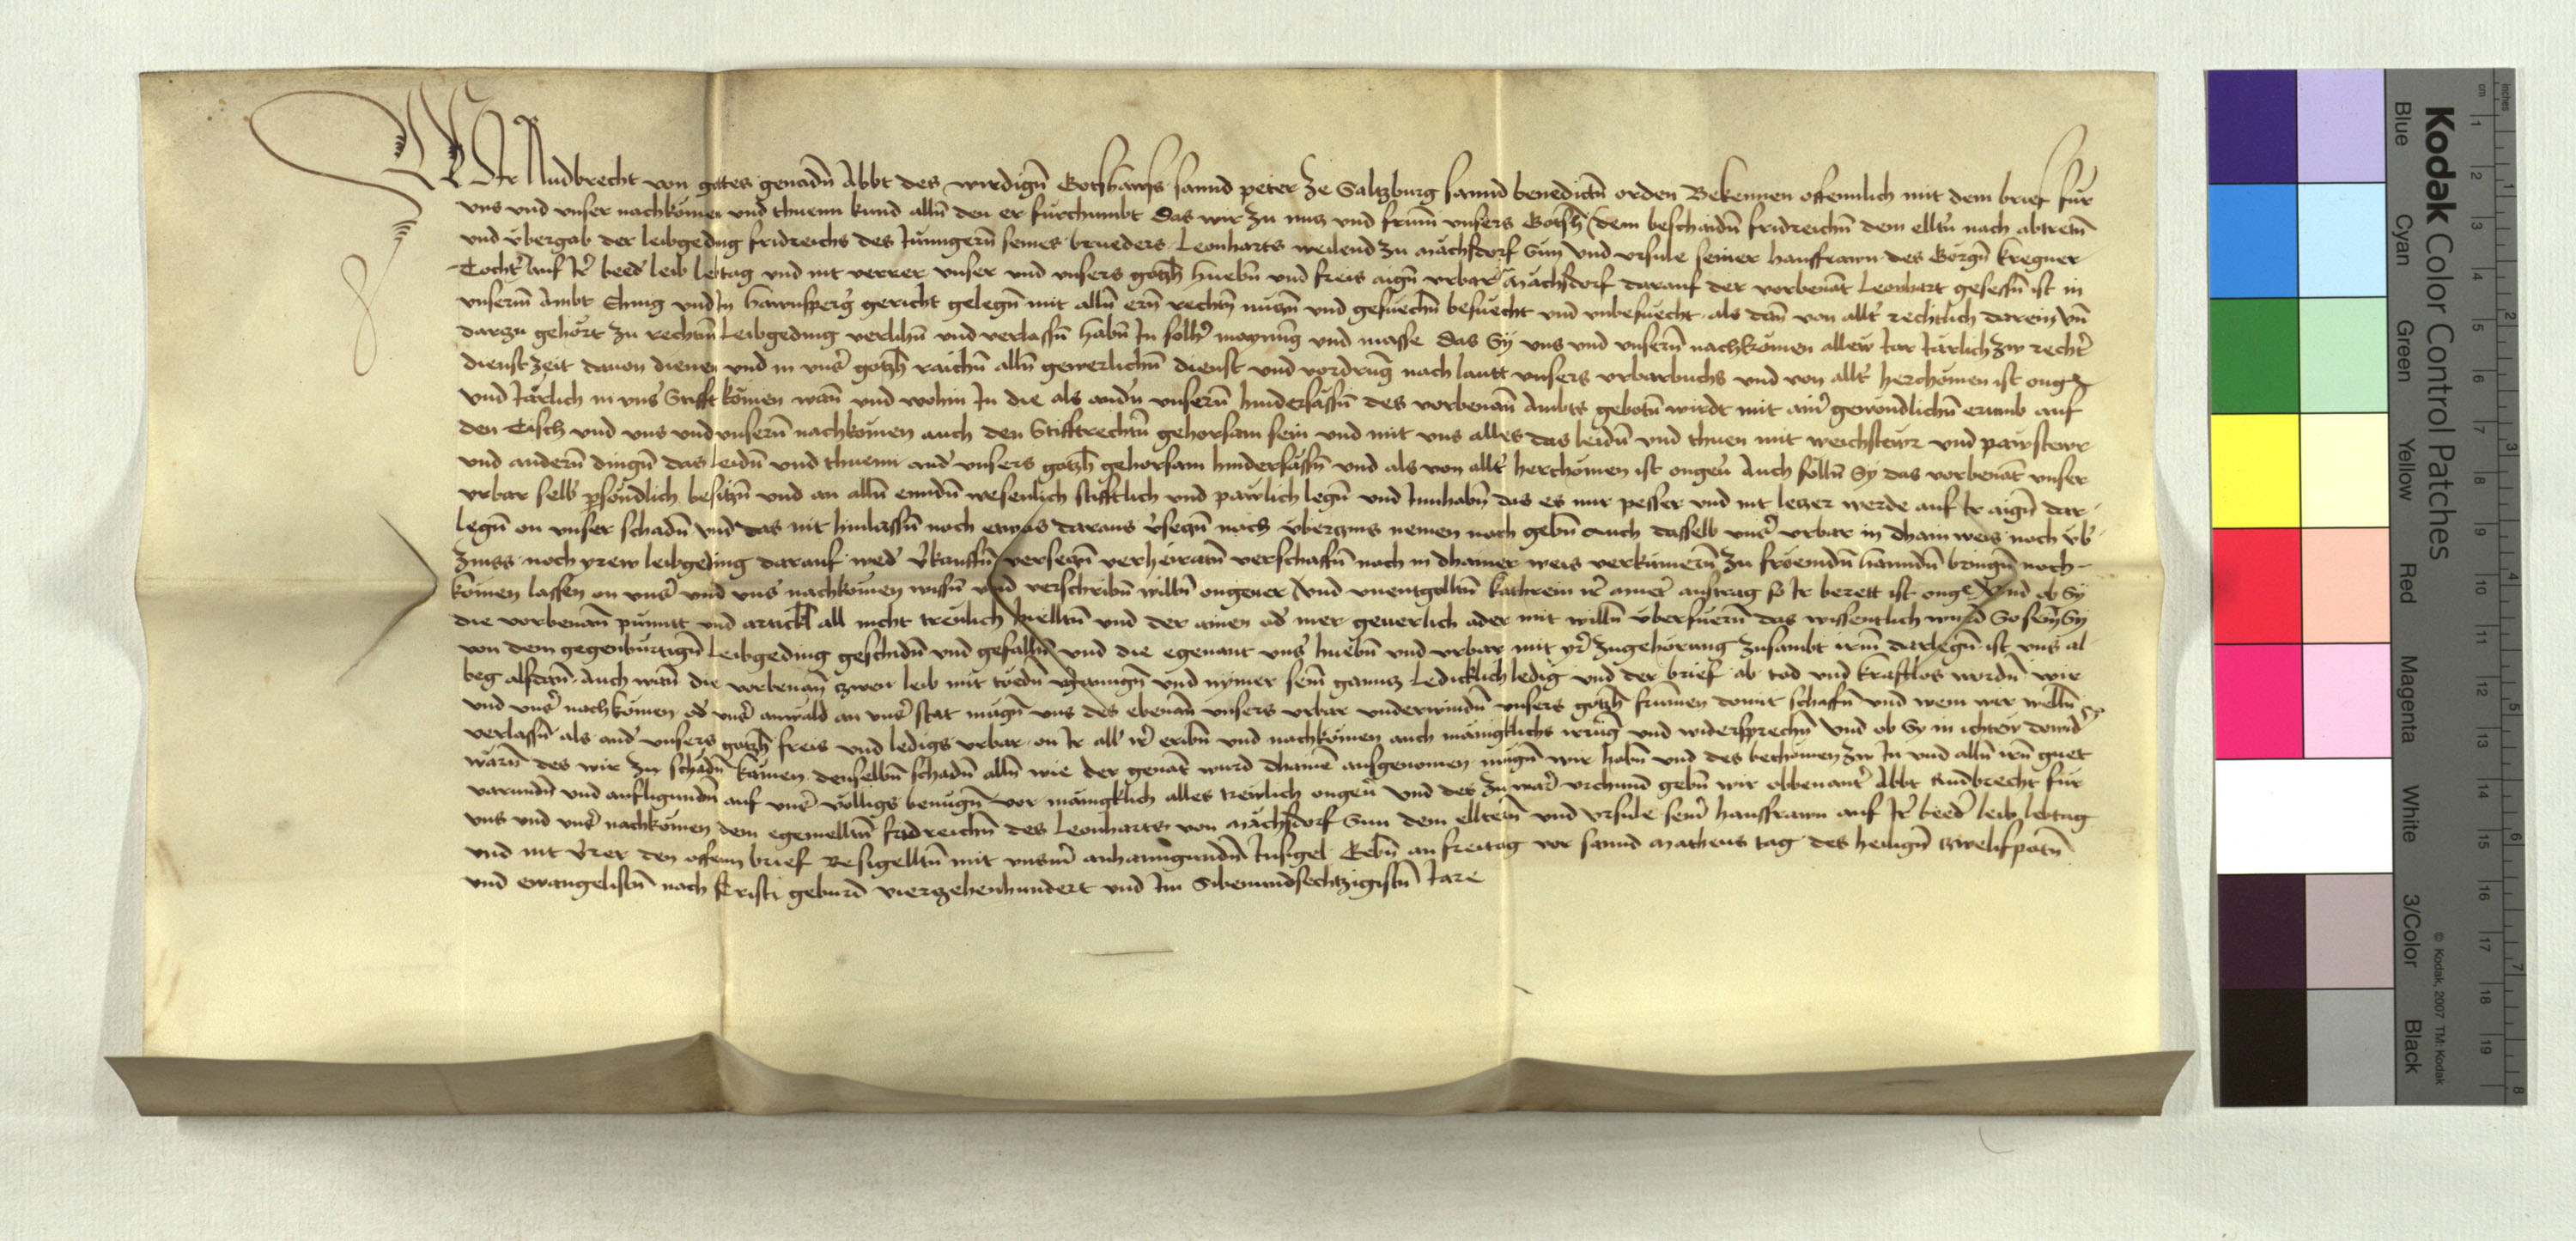 Wir Rudbrecht von gotes genadn̄ Abbt des wirdign̄ Gotshaws sannd peter ze Saltzburg sannd benedictn̄ orden Bekennen offennlich mit dem brief fur
vns vnd vnser nachkömen vnd thuenn kund alln̄ den er furchumbt das wir zu nutz vnd frumn̄ vnsers Gotzh̄ dem beschaidn̄ fridreichn̄ dem elltn̄ nach abtretn̄
vnd vbergab der leibgedng fridreichs des Junngern̄ seines brueders Leonharts weilend zu mächsdorf Sun vnd vrsule seiner hausfrawn des Görgn̄ kregner
Tocht̄ auf Ir̄ beed̄ leib lebtag vnd nit verrer vnser vnd vnsers gotzh̄ huebn̄ vnd freis aign̄ vrbar mächsdorf darauf der vorbenāt Leonhart gesessn̄ ist in
vnserm̄ Ambt Ehing vnd In hawnsperḡ gericht gelegn̄ mit alln̄ ern̄ rechtn̄ nutzn̄ vnd gesuechn̄ besuecht vnd vnbesuecht als dān von allt̄ rechtlich darein vn̄
darzu gehört zu rechtn̄ Leibgeding verlihn̄ vnd verlassn̄ habn̄ In solh̄ maynūg vnd masse das Sy vns vnd vnsern̄ nachkömen allew Iar Järlich zw recht̄
dienstzeit dauon dienen vnd in vns̄ gotzh̄ raichn̄ alln̄ gewerlichn̄ dienst vnd vordrūg nach lautt vnsers vrbarbuchs vnd von allt̄ herchömen ist onge
vnd Järlich in vns̄ Stifft kömen wān vnd wohin In die als andn̄ vnsern̄ hindersässn̄ des vorbenān̄ Ambts gebotn̄ wirdt mit aim̄ gewöndlichn̄ erumb auf
den Tisch vnd vns vnd vnsern̄ nachkömen auch den Stifftrechtn̄ gehorsam sein vnd mit vns alles das leidn̄ vnd thuen mit weichstewr vnd pawstewr
vnd andern̄ dingn̄ das leidn̄ vnd thuenn and̄ vnsers gotzh̄ gehorsam hindersässn̄ vnd als von allt̄ herchömen ist ongeū Auch sölln̄ Sy das vorbenāt vnser
vrbar selb̄ psöndlich besitzn̄ vnd an alln̄ enndn̄ wesenlich stifftlich vnd päwlich legn̄ vnd Innhabn̄ das es nur pesser vnd nit letzer werde auf Ir aign̄ dar
legn̄ on vnser schadn̄ vnd das nit hinlassn̄ noch etwas daraus v̄setzn̄ noch vberzins nemen noch gebn̄ Auch dasselb vns̄ vrbar in dhain weis noch vb̄
zinss noch yrew leibgeding darauf wed̄ v̄kauffn̄ versetzn̄ verheiratn̄ verschaffn̄ noch in dhainer weis verkümern̄ zu frömdn̄ hanndn̄ bringn̄ noch
kömen lassen on vns̄ vnd vns̄ nachkömen wissn̄ vnd verschribn̄ willn̄ ongeuer vnd vnentgoltn̄ kathrein ir̄ amer̄ austrag so Ir berett ist onge vnd ob Sy
die vorbenān̄ puntt vnd artickl all nicht treulich hielltn̄ vnd der ainen od̄ mer geuerlich ader mit willn̄ vberfuern̄ das wissentlich wurd So sein Sy
von dem gegenburtign̄ Leibgeding geschidn̄ vnd gefalln̄ vnd die egenant vns̄ huebn̄ vnd vrbar mit yr̄ zugehörung zusambt irm̄ darlegn̄ ist vns al
beg alsdān̄ Auch wān̄ die vorbenān̄ zwen leib mit toedn̄ vnd nymer sein̄ ganntz Ledicklich ledig vnd der brief ab tod vnd kraftlos wordn̄ wir
vnd vns̄ nachkömen od̄ vns̄ anwald an vns̄ stat mugn̄ vns des ebenān̄ vnsers vrbar vnderwindn̄ vnsers gotzh̄ frumen domit schaffn̄ vnd wem wir welln̄
verlassn̄ als and̄ vnsers gotzh̄ freis vnd ledigs vrbar on Ir all̄ ir̄ eribn̄ vnd nachkömen auch mänigklichs irrūg vnd widersprechn̄ vnd ob Sy in ichtew dowid̄
wärn̄ des wir zu schadn̄ kämen denselbn̄ schadn̄ alln̄ wie der genāt wurd dhainē ausgenomen mugn̄ wir habn̄ vnd des bechömen zw In vnd alln̄ irn̄ guet
varundn̄ vnd aufligundn̄ auf vns̄ völligs benugn̄ vor mänigklich alles treulich ongeū vnd des zu war̄ vrchund gebn̄ wir obbenant̄ Abbt Rudbrecht fur
vns vnd vns̄ nachkömen dem egemelltn̄ fridreichn̄ des Leonharts von mächsdorf Sun dem elltern̄ vnd vrsule sein̄ hausfrawn auf Ir̄ beed̄ leib lebtag
vnd nit v̄rer den offenn brief Besigelltn̄ mit vnserm̄ anhanngundn̄ Insigel Gebn̄ an freitag vor sannd matheus tag des heilign̄ zwelifpotn̄
vnd ewangelistn̄ nach Kristi geburd vierzehenhundert vnd Im Sibenundsechtzigistn̄ Jare
Kodak Color Control Patches
Blue Cyan Green Yellow Red Magenta White 3/Color Black
© Kodak, 2007 TM: Kodak
cm 1 2 3 4 5 6 7 8 9 10 11 12 13 14 15 16 17 18 19
inches 1 2 3 4 5 6 7 8